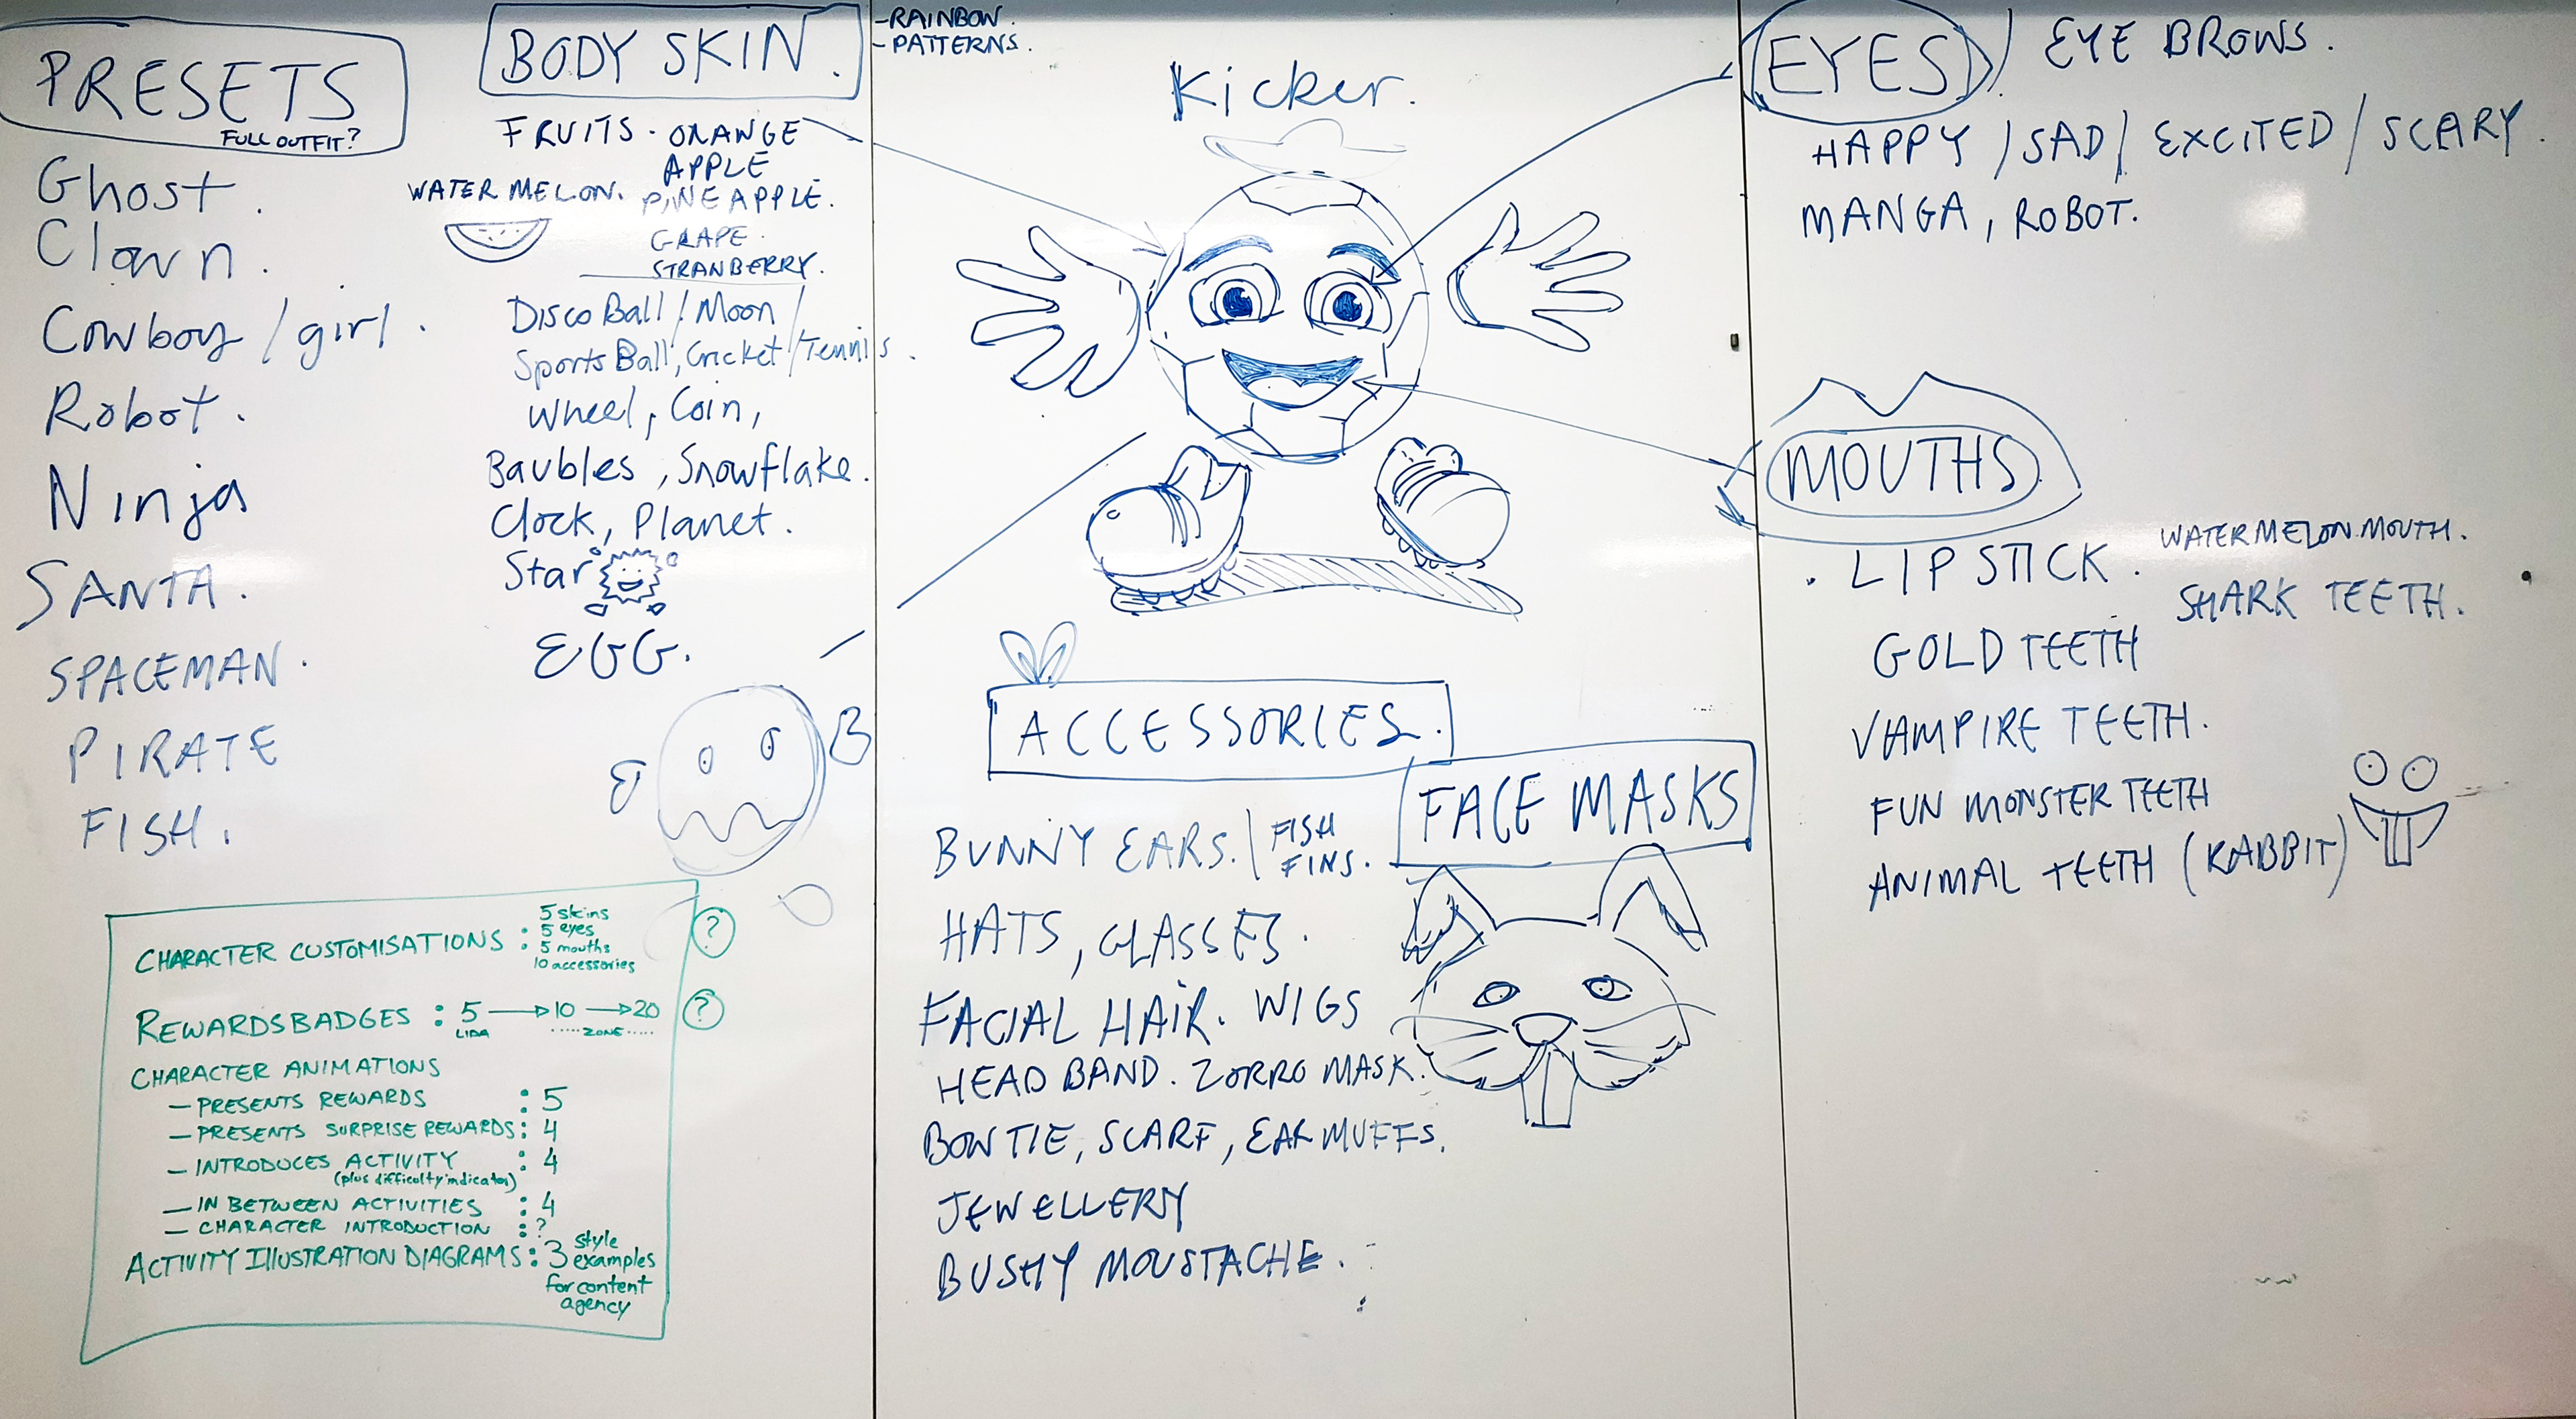 PRESETS
FULL OUTFIT?
Ghost.
Clown.
Cowboy / girl.
Robot.
Ninja
SANTA.
SPACEMAN.
PIRATE
FISH.
BODY SKIN.
- RAINBOW.
- PATTERNS.
FRUITS - ORANGE
APPLE
WATERMELON. PINEAPPLE.
GRAPE
STRANBERRY.
Disco Ball / Moon /
Sports Ball, Cricket / Tennis.
Wheel, Coin,
Baubles, Snowflake.
Clock, Planet.
Star
EGG.
CHARACTER CUSTOMISATIONS : 5 skins
5 eyes
5 mouths
10 accessories
?
REWARDS BADGES : 5 → 10 → 20
?
LIDA ..... ZONE .....
CHARACTER ANIMATIONS
- PRESENTS REWARDS : 5
- PRESENTS SURPRISE REWARDS : 4
- INTRODUCES ACTIVITY : 4
(plus difficulty indicator)
- IN BETWEEN ACTIVITIES : 4
- CHARACTER INTRODUCTION : ?
ACTIVITY ILLUSTRATION DIAGRAMS : 3 style
examples
for content
agency
Kicker.
ACCESSORIES.
FACE MASKS
BUNNY EARS. / FISH
FINS.
HATS, GLASSES.
FACIAL HAIR. WIGS
HEAD BAND. ZORRO MASK.
BOW TIE, SCARF, EAR MUFFS.
JEWELLERY
BUSHY MOUSTACHE.
EYES / EYE BROWS.
HAPPY / SAD / EXCITED / SCARY.
MANGA, ROBOT.
MOUTHS
. LIPSTICK. WATERMELON MOUTH.
SHARK TEETH.
GOLD TEETH
VAMPIRE TEETH.
FUN MONSTER TEETH
ANIMAL TEETH (RABBIT)